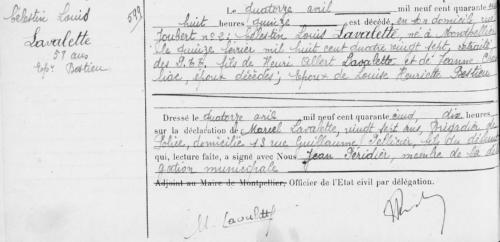 Célestin Louis
Lavalette
57 ans
Epx Bostieu
579
Le quatorze avril mil neuf cent quarante
huit heures quinze est décédé, en son domicile, rue
Joubert no 2; Célestin Louis Lavalette, né à Montpellier
le quinze février mil huit cent quatre vingt sept, retraité
des P.T.T, fils de Henri Albert Lavalette et de Jeanne
liac, époux décédés; Epoux de Louise Henriette Bostieu
Dressé le quatorze avril mil neuf cent quarante cinq, dix heures,
sur la déclaration de Marcel Lavalette, vingt sept ans, Brigadier de
Police, domicilié 13 rue Guillaume Pellicier, fils du défunt
qui, lecture faite, a signé avec Nous Jean Péridier, membre de la délé
gation municipale
Adjoint au Maire de Montpellier, Officier de l'Etat civil par délégation.
M. Lavalette